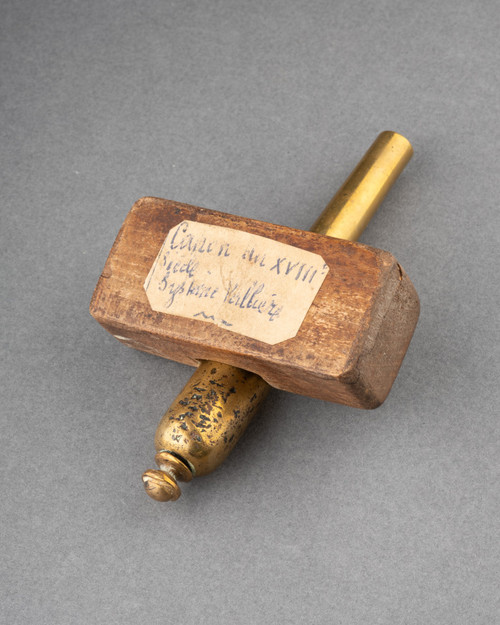 Canon du XVIIIe
siècle
Système Vallière